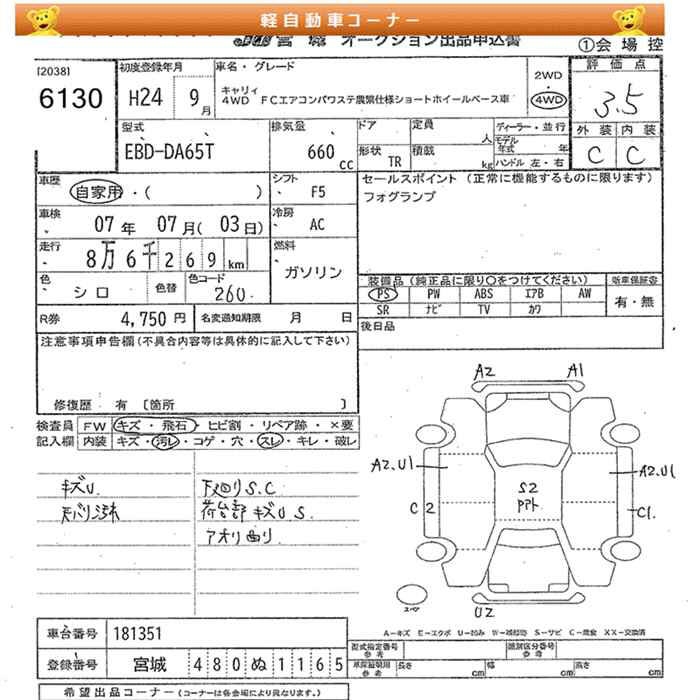 軽自動車コーナー
JU宮城 オークション出品申込書 ①会場控
[2038]
6130
初度登録年月
H24 9月
車名・グレード
キャリィ
4WD FCエアコンパワステ農繁仕様ショートホイールベース車
2WD
・
4WD
評価点
3.5
外装 内装
C C
型式
EBD-DA65T
排気量
660 cc
ドア
形状 TR
定員 人
積載 kg
ディーラー・並行
モデル年式 年
ハンドル 左・右
車歴
自家用・( )
シフト
F5
セールスポイント (正常に機能するものに限ります)
フォグランプ
車検
07年 07月(03日)
冷房
AC
走行
8万6千269km
燃料
ガソリン
色
シロ
色替
色コード
260
装備品 (純正品に限り○をつけてください)
PS PW ABS エアB AW
SR ナビ TV カワ
新車保証書
有・無
R券 4,750円 名変通知期限 月 日
後日品
注意事項申告欄(不具合内容等は具体的に記入して下さい)
修復歴 有 〔箇所 〕
検査員記入欄
FW キズ・飛石・ヒビ割・リペア跡・×要
内装 キズ・汚レ・コゲ・穴・スレ・キレ・破レ
キズU.
天バリ汚れ
下廻りS.C
荷台部キズU S.
アオリ曲リ
A2 A1
A2.U1 A2.U1
S2
C2 C1.
U2
スペア
A-キズ E-エクボ U-凹み W-補修跡 S-サビ C-腐食 XX-交換済
車台番号 181351
登録番号 宮城 480ぬ1165
型式指定番号 参考
類別区分番号 参考
車庫証明用 参考
長さ cm 幅 cm 高さ cm
希望出品コーナー(コーナーは各会場により異なります。)